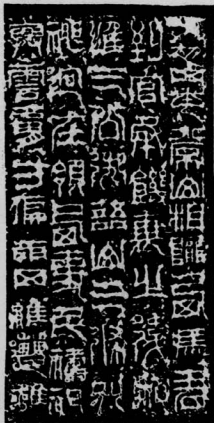 初四年常山相隴西馮君
到官承饑衰之後
惟三公御語山三條別
神迥在領西吏民禱祀
興雲膚寸徧雨四維遭離